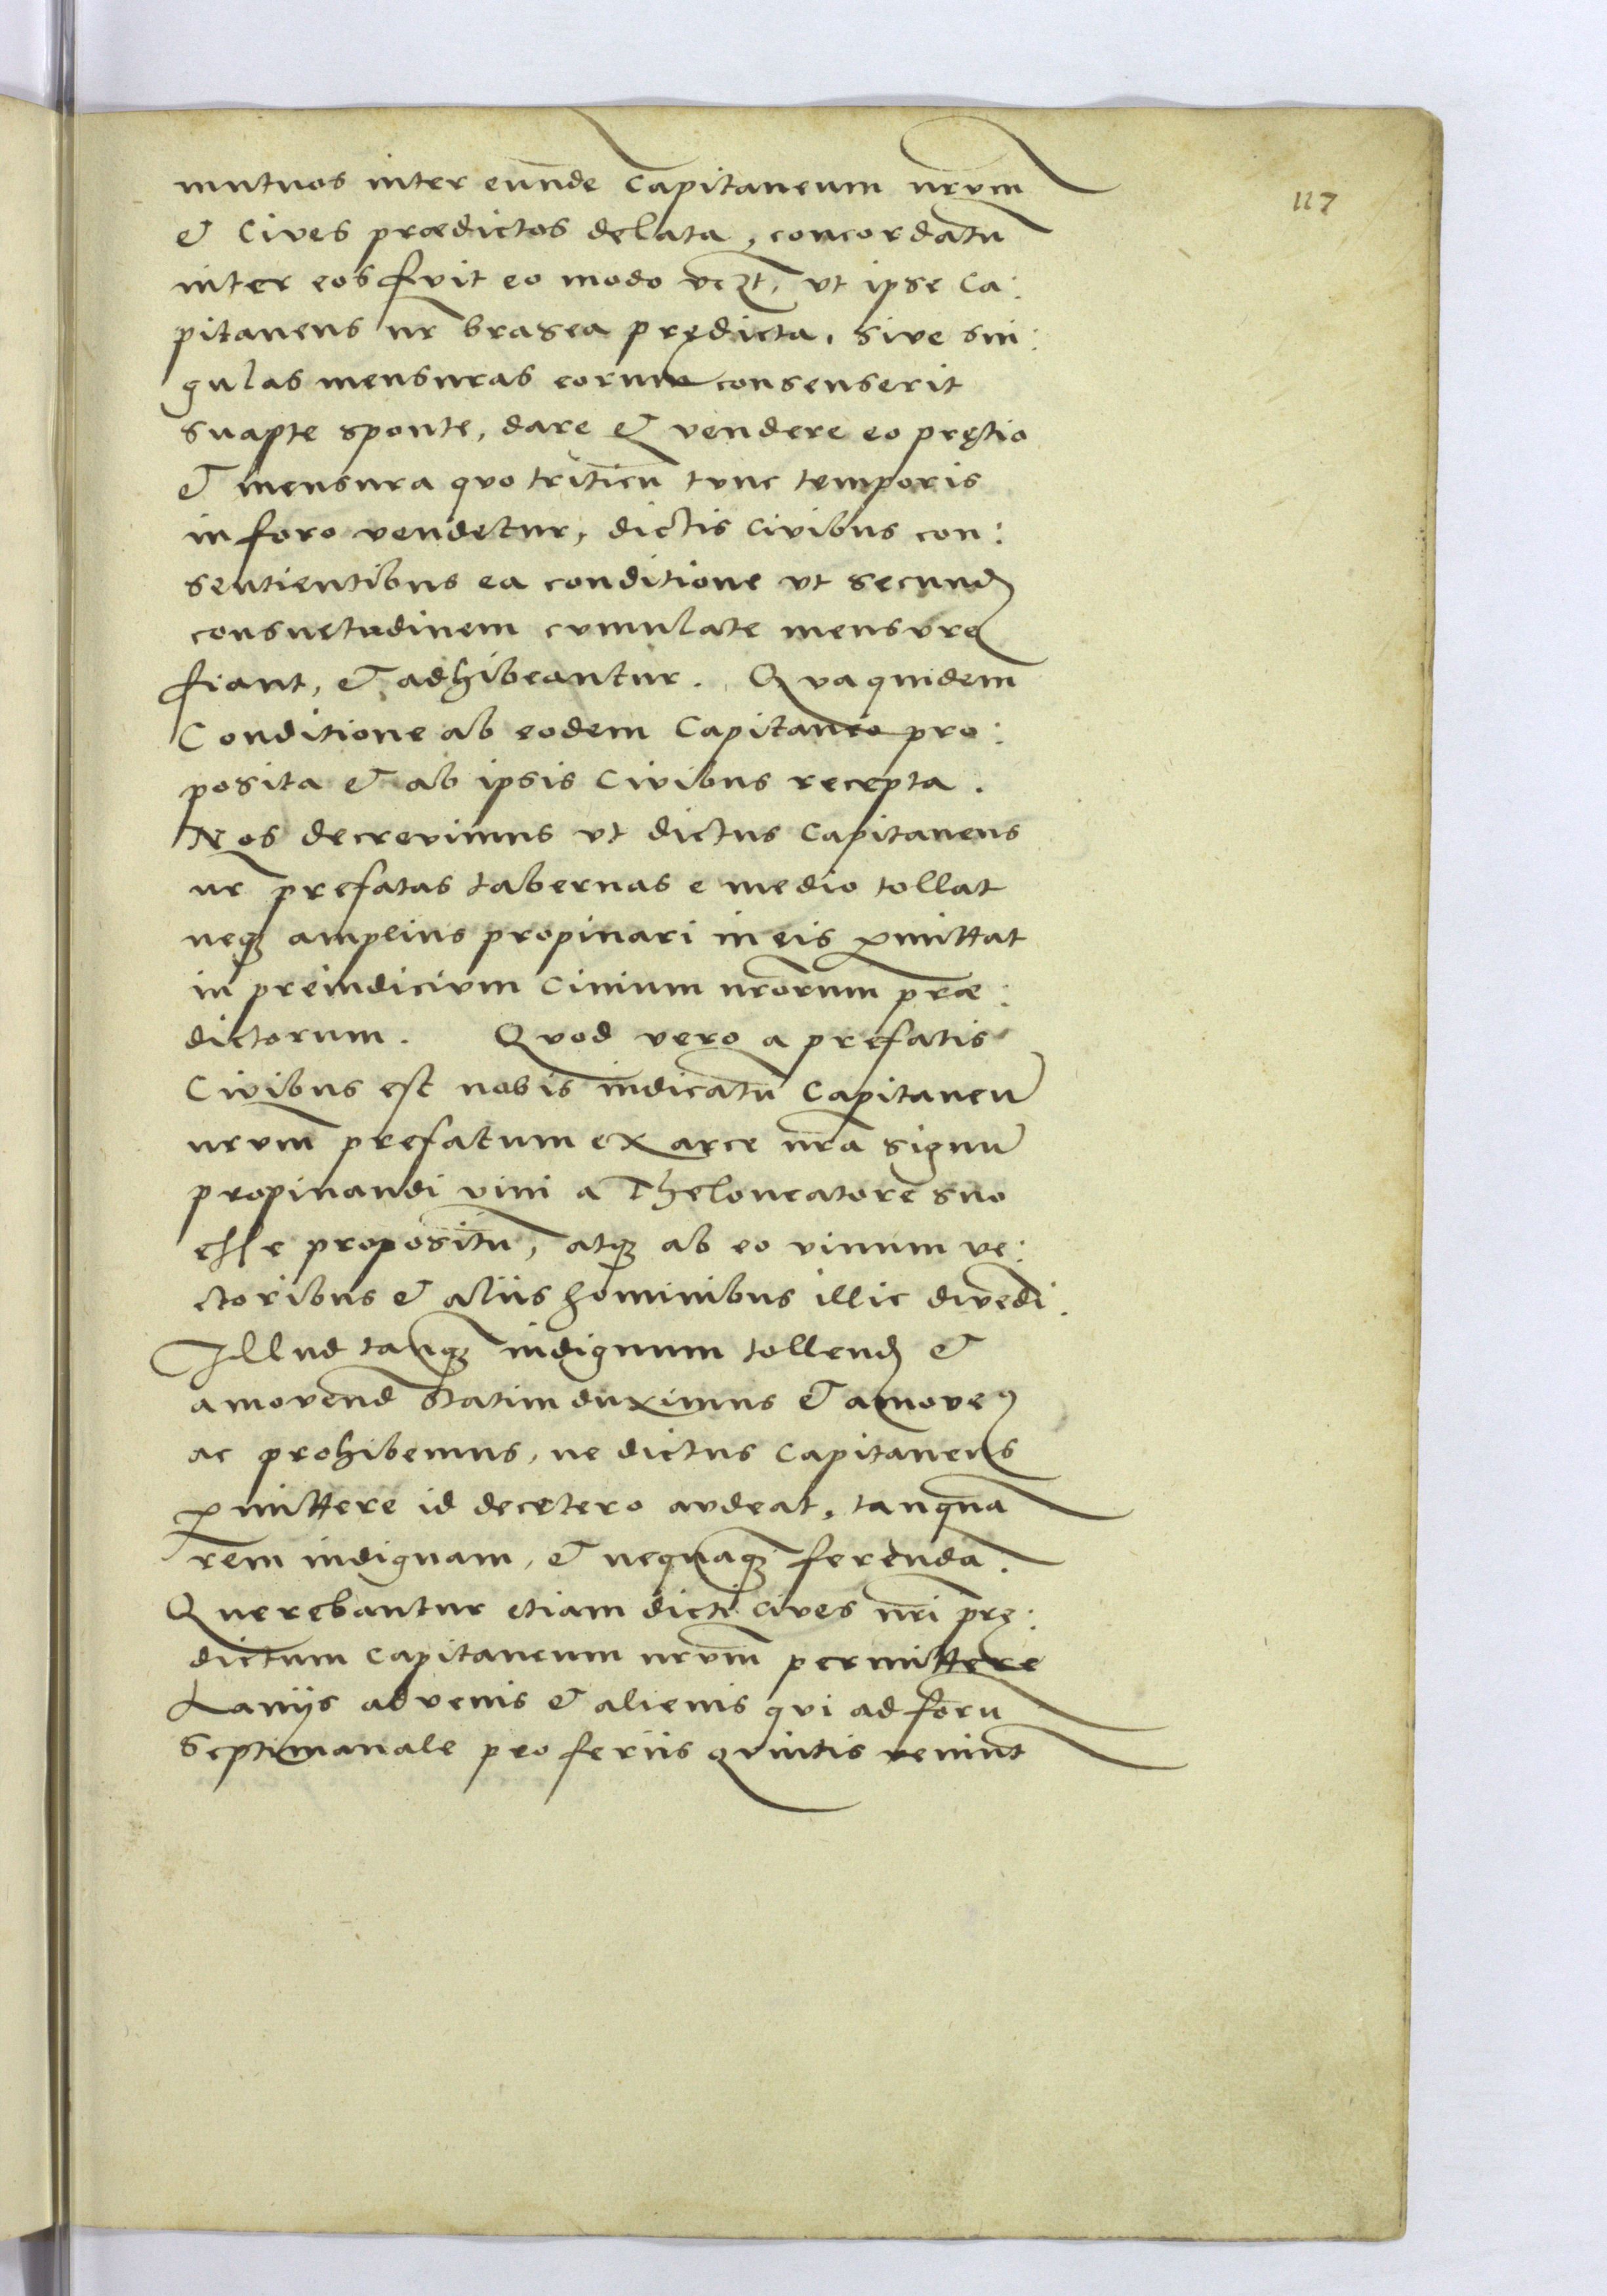 117
mutuos inter eunde Capitaneum nrum
& Cives prædictos delata, concordatū
inter eos fuit eo modo vczt, vt ipse Ca:
pitaneus nr brasea prędicta, sive sin:
gulas mensuras eorum consenserit
suapte sponte, dare & vendere eo prętio
& mensura quo triticū tunc temporis
in foro vendetur, dictis Civibus con:
sentientibus ea conditione vt secund
consuetudinem cumulate mensurę
fiant, & adhibeantur. Qua quidem
Conditione ab eodem Capitaneo pro:
posita & ab ipsis Civibus recepta.
Nos decrevimus vt dictus Capitaneus
nr prefatas tabernas e medio tollat
neqȝ amplius propinari in eis ꝑmittat
in preiudicium Civium nrorum præ:
dictorum. Quod vero a prefatis
Civibus est nobis indicatū Capitaneū
nrum prefatum ex arce nra signū
propinandi vini a Theloneatore suo
esse propositū, atqȝ ab eo vinum ve:
ctoribus & aliis hominibus illic divēdi.
Illud tanqȝ indignum tollend &
amovend statim duximus & amoveꝰ
ac prohibemus, ne dictus Capitaneus
ꝑmittere id decętero audeat, tanquā
rem indignam, & nequaqȝ ferendā.
Querebantur etiam dicti Cives nri prę:
dictum Capitaneum nrum permittere
Laniis advenis & alienis qui ad forū
Septimanale pro feriis quintis veniūt